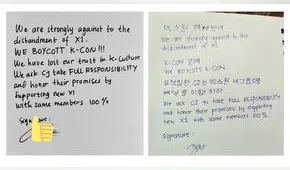 We are strongly against to the
disbandment of X1.
WE BOYCOTT K-CON !!!
We have lost our trust in k-culture
We ask CJ take FULL RESPONSIBILITY
and honor their promises by
supporting new X1
with same members 100%
Signature:
엑스원 해체 반대
We are strongly against to the
disbandment of X1.
K-CON 보이콧
We BOYCOTT K-CON
CJ는 엑스원 새그룹
We ask CJ to take FULL RESPONSIBILITY
and honor their promises by supporting
new X1 with same members 100%.
Signature: